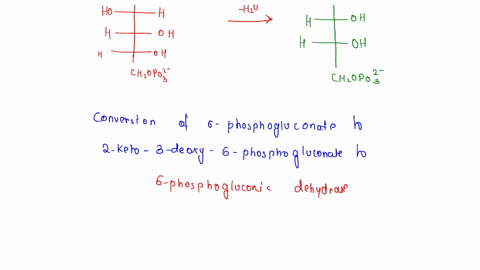 HO H -H2O OH
H OH H OH
H OH
CH2OPO3 2- CH2OPO3 2-
Conversion of 6-phosphogluconate to
2-keto-3-deoxy-6-phosphogluconate to
6-phosphogluconic dehydrase